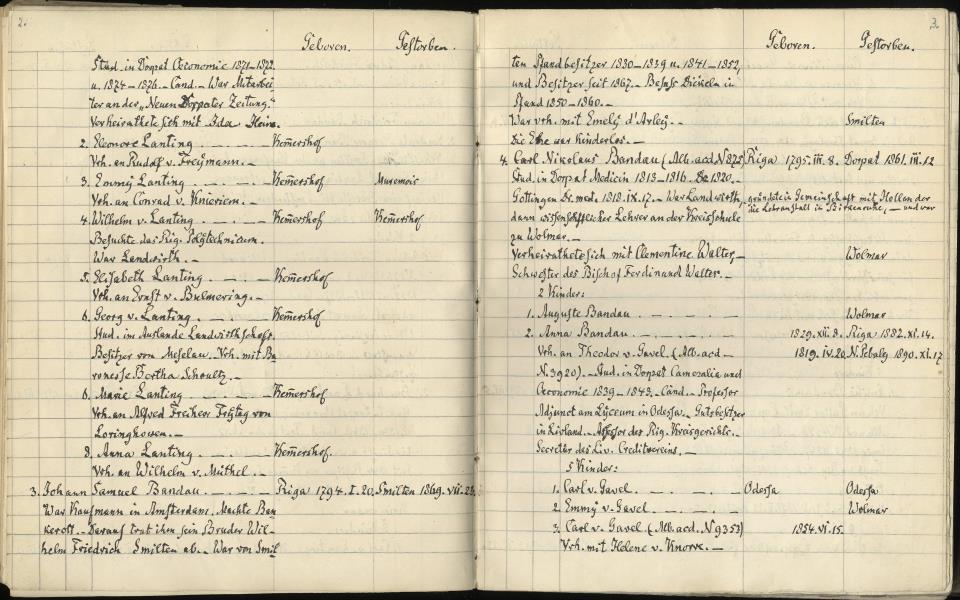 2.
Geboren. Gestorben.
Stud. in Dorpat Oeconomie 1871–1872.
u. 1874–1876. – Cand. – War Mitarbei
ter an der „Neuen Dorpater Zeitung."
Verheirathete sich mit Ida Heine.
2. Eleonore Lanting Kem̄ershof
Vrh. an Rudolf v. Freymann. –
3. Emmy Lanting . – . – . – Kem̄ershof Muremois
Vrh. an Conrad v. Knieriem. –
4. Wilhelm v. Lanting . – . – Kem̄ershof Kem̄ershof
Besuchte das Rig. Polytechnicum.
War Landwirth. –
5. Elisabeth Lanting . – . – Kem̄ershof
Vrh. an Ernst v. Bulmering. –
6. Georg v. Lanting . – . – Kem̄ershof
Stud. im Auslande Landwirthschaft.
Besitzer von Meselau. Vrh. mit Ba
ronesse Bertha Schoultz. –
6. Marie Lanting . – . – . – Kem̄ershof
Vrh. an Alfred Freiherr Frÿtag von
Loringhowen. –
8. Anna Lanting . – . – . – Kem̄ershof.
Vrh. an Wilhelm v. Müthel. –
3. Johann Samuel Bandau . – . – . – Riga 1794. I. 20. Smilten 1869. VII. 23.
War Kaufmann in Amsterdam. Machte Ban
kerott. – Darauf trat ihm sein Bruder Wil-
helm Friedrich Smilten ab. – War von Smil
3.
Geboren. Gestorben.
ten Pfandbesitzer 1830–1839 u. 1841–1852,
und Besitzer seit 1867. – Besass Dickeln in
Pfand 1850–1860. –
War vrh. mit Emely d'Arley. – Smilten
Die Ehe war kinderlos. –
4. Carl Nikolaus Bandau (Alb. acd. N 825) Riga 1795. III. 8. Dorpat 1861. III. 12
Stud. in Dorpat Medicin 1813–1816. 1820. –
Göttingen Dr. med. 1818. IX. 17. – War Landwirth, gründete in Gemeinschaft mit Hollen der
die Lehranstalt in Birkenruhe, – und war
dann wissenschaftlicher Lehrer an der Kreisschule
zu Wolmar. –
Verheirathete sich mit Clementine Walter, – Wolmar
Schwester des Bischof Ferdinand Walter. –
2 Kinder:
1. Auguste Bandau . – . – . – Wolmar
2. Anna Bandau . – . – . – 1829. XII. 8. Riga 1882. XI. 14.
Vrh. an Theodor v. Gavel. (Alb. acd – 1819. IV. 20. N. Pebalg 1890. XI. 17
N. 3920). – Stud. in Dorpat Cameralia und
Oeconomie 1839–1843. – Cand. – Professor
Adjunct am Lyceum in Odessa. – Gutsbesitzer
in Livland. – Assessor des Rig. Kreisgerichts. –
Secretär des Liv. Creditvereins. –
5 Kinder:
1. Carl v. Gavel. – . – . – Odessa Odessa
2. Emmy v. Gavel . – . – . – Wolmar
3. Carl v. Gavel (Alb. acd. N 9353) 1854. VI. 15.
Vrh. mit Helene v. Knorre. –